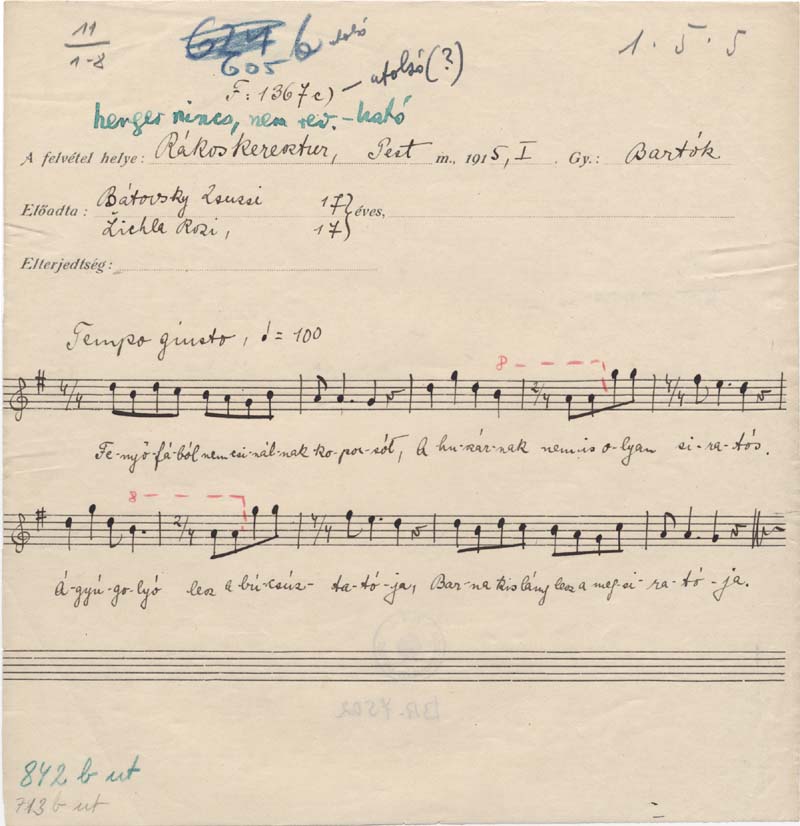 11
1-8
605 b utolsó
1 . 5 . 5
F: 1367c) — utolsó(?)
henger nincs, nem rev.-ható
A felvétel helye: Rákoskeresztur, Pest m., 1915, I. Gy.: Bartók
Előadta: Bátovsky Zsuzsi 17 éves,
Žichla Rozi, 17
Elterjedtség:
Tempo giusto, ♩= 100
8
4/4 2/4 4/4
Fe-nyő-fá-ból nem csi-nál-nak ko-por-sót, A hu-zár-nak nem is o-lyan si-ra-tós.
8
2/4 4/4
Á-gyú-go-lyó lesz a bú-csúz-ta-tó-ja, Bar-na kis lány lesz a meg-si-ra-tó-ja.
842 b ut
713 b ut